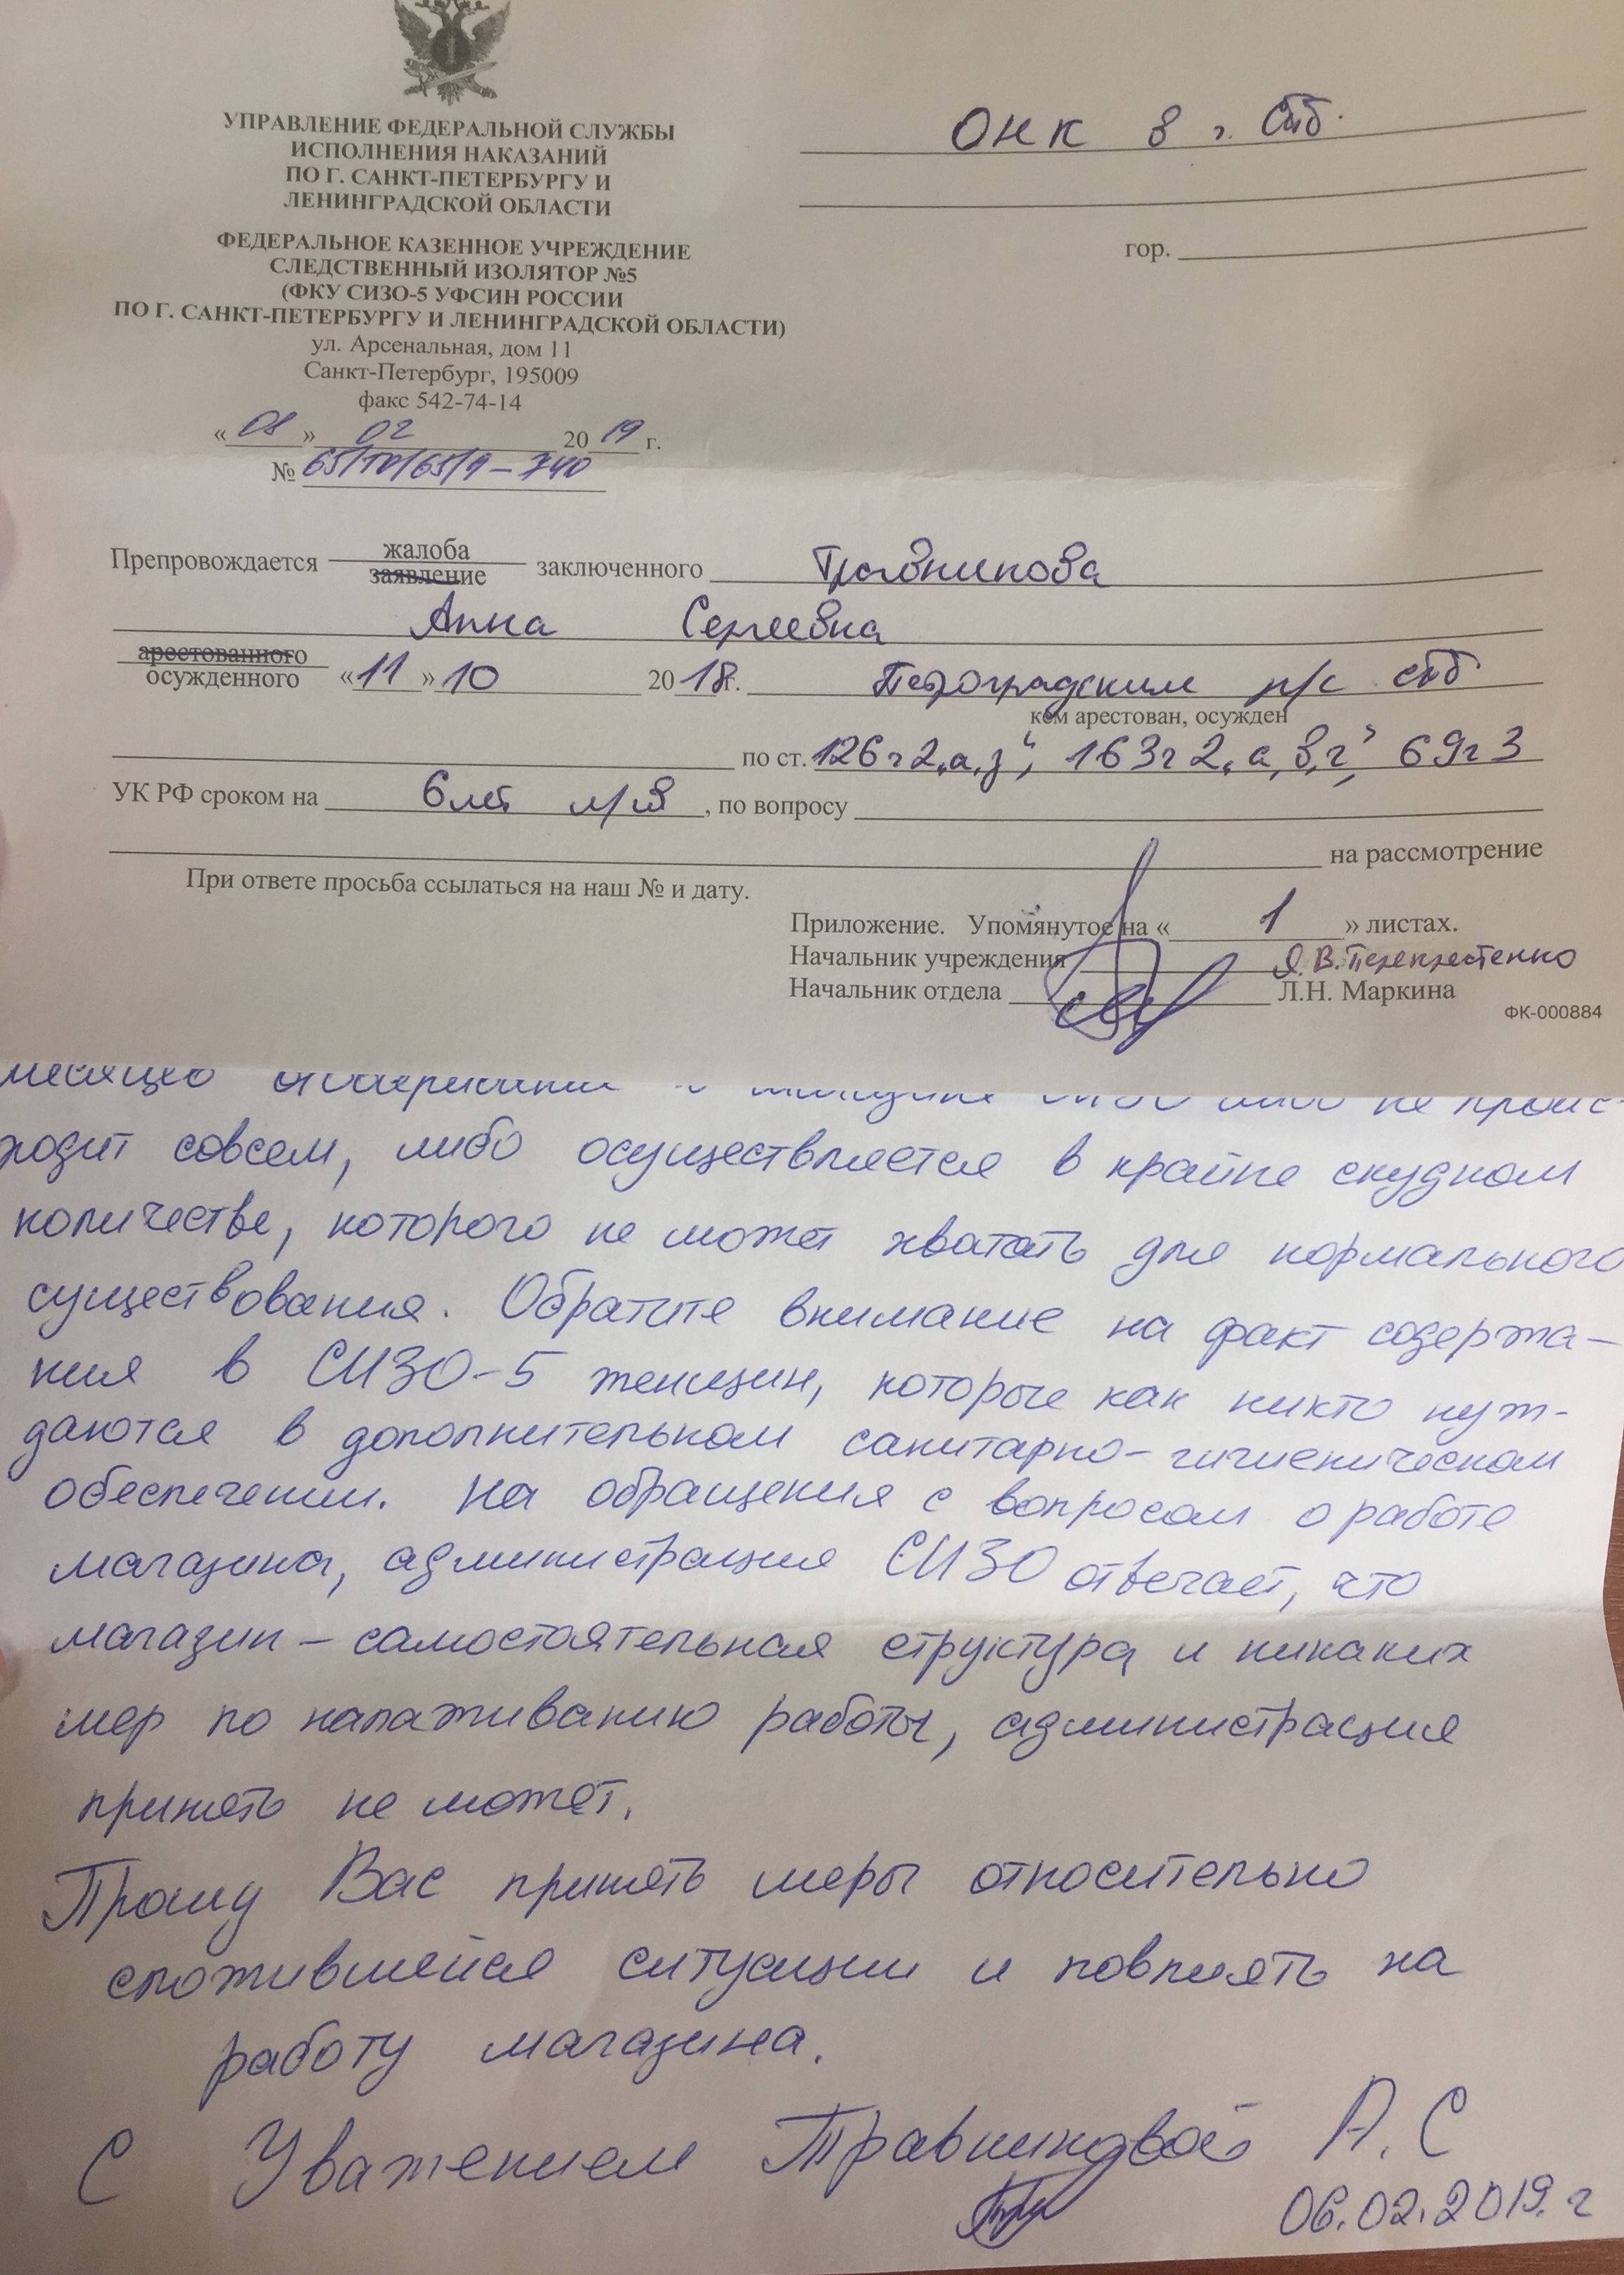 УПРАВЛЕНИЕ ФЕДЕРАЛЬНОЙ СЛУЖБЫ
ИСПОЛНЕНИЯ НАКАЗАНИЙ
ПО Г. САНКТ-ПЕТЕРБУРГУ И
ЛЕНИНГРАДСКОЙ ОБЛАСТИ
ФЕДЕРАЛЬНОЕ КАЗЕННОЕ УЧРЕЖДЕНИЕ
СЛЕДСТВЕННЫЙ ИЗОЛЯТОР №5
(ФКУ СИЗО-5 УФСИН РОССИИ
ПО Г. САНКТ-ПЕТЕРБУРГУ И ЛЕНИНГРАДСКОЙ ОБЛАСТИ)
ул. Арсенальная, дом 11
Санкт-Петербург, 195009
факс 542-74-14
«08» 02 2019 г.
№ 65/ТО/65/9-740
ОНК в г. СПб.
гор.
Препровождается жалоба заключенного Травникова
заявление
Анна Сергеевна
арестованного
осужденного «11» 10 2018г. Петроградским р/с СПб
кем арестован, осужден
по ст. 126ч2„а,з“, 163ч2„а,в,г“, 69ч3
УК РФ сроком на 6лет л/св, по вопросу
на рассмотрение
При ответе просьба ссылаться на наш № и дату.
Приложение. Упомянутое на «1» листах.
Начальник учреждения Я.В.Перекрестенко
Начальник отдела Л.Н. Маркина
ФК-000884
СИЗО либо не проис-
ходит совсем, либо осуществляется в крайне скудном
количестве, которого не может хватать для нормального
существования. Обратите внимание на факт содержа-
ния в СИЗО-5 женщин, которые как никто нуж-
даются в дополнительном санитарно-гигиеническом
обеспечении. На обращения с вопросом о работе
магазина, администрация СИЗО отвечает, что
магазин – самостоятельная структура и никаких
мер по налаживанию работы, администрация
принять не может.
Прошу Вас принять меры относительно
сложившейся ситуации и повлиять на
работу магазина.
С Уважением Травниковой А.С
06.02.2019.г